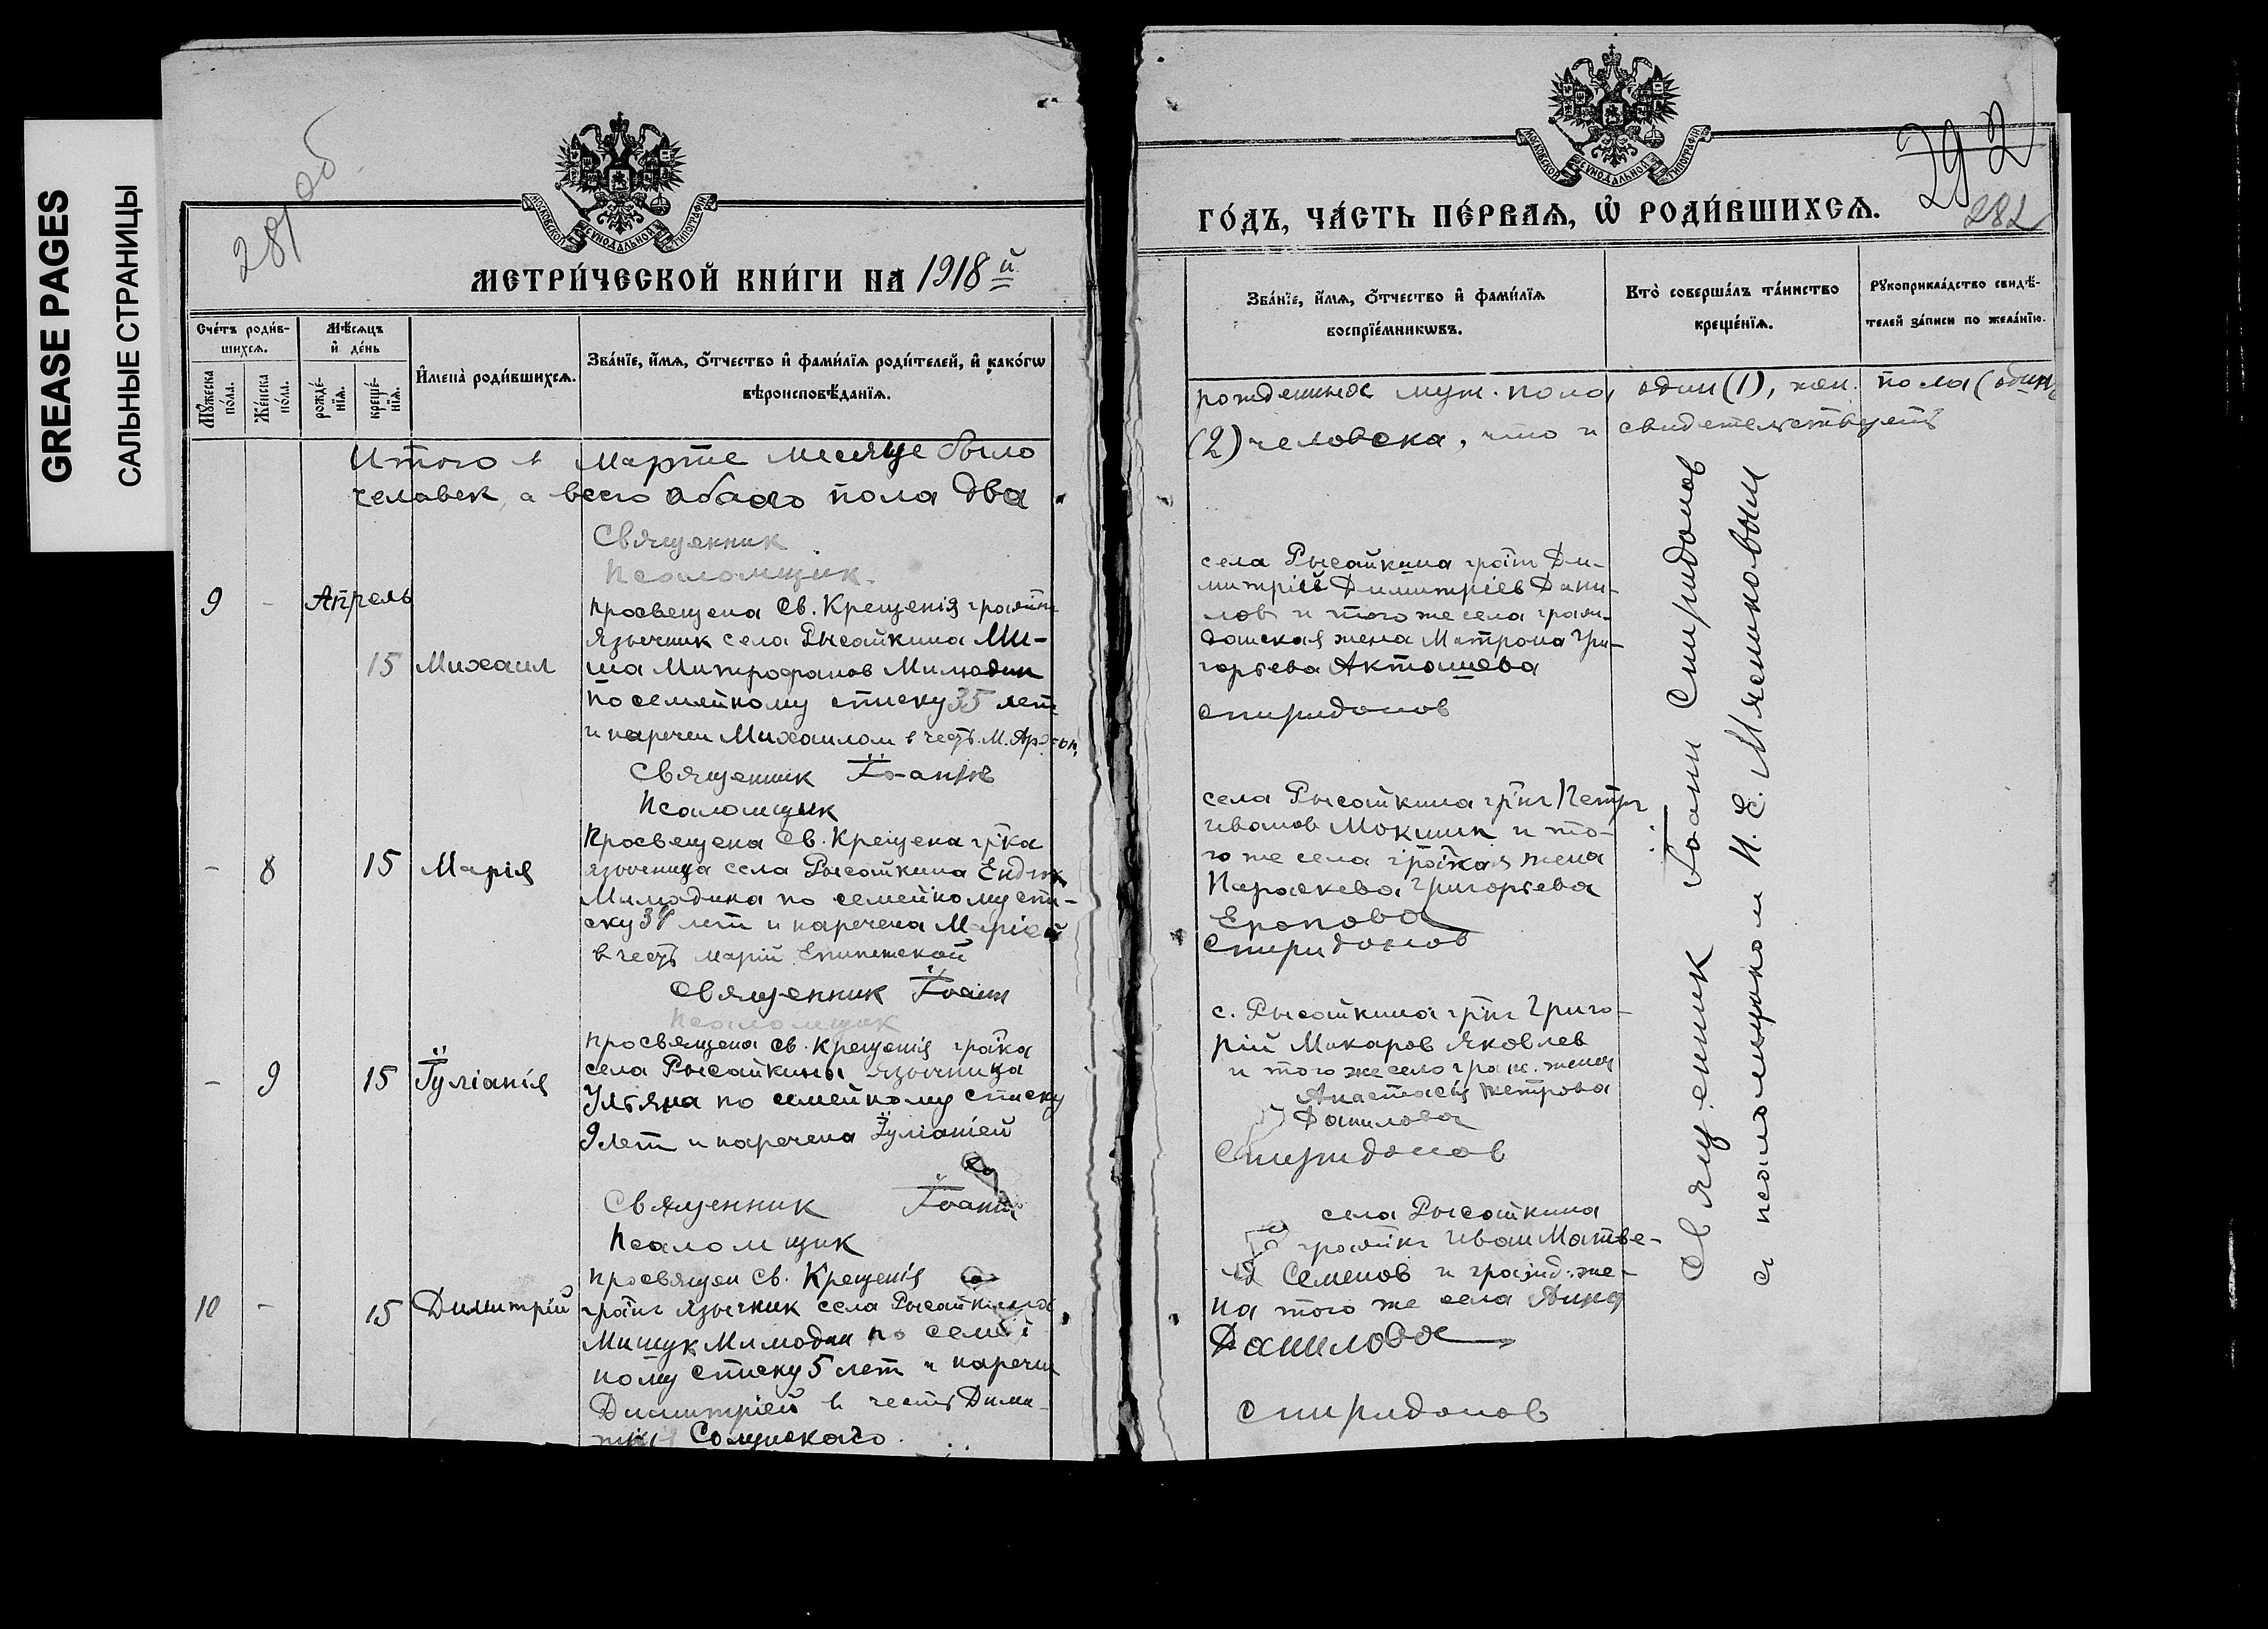 GREASE PAGES
САЛЬНЫЕ СТРАНИЦЫ
281 об
МОСКОВСКОЙ СѴНОДАЛЬНОЙ ТИПОГРАФІИ
МЕТРИ́ЧЕСКОЙ КНИ́ГИ НА 1918 й
Сче́тъ роди́в-
шихсѧ.
Мѣ́сѧцъ
и҆ де́нь
Му́жеска
по́ла.
Же́нска
по́ла.
рожде́-
нїѧ.
креще́-
нїѧ.
И҆мена̀ роди́вшихсѧ.
Зва́нїе, и҆́мѧ, ѻ҆́тчество и҆ фами́лїѧ роди́телей, и҆ како́гѡ
вѣроисповѣ́данїѧ.
Итого в Марте месяце было
человек, а всего обоего пола два
Священник
Псаломщик
9 - Апрель
15 Михаил
просвещена Св. Крещенія
язычник села Рысайкина Ми-
ша Митрофанов Милюдин
по семейному списку 35 лет
и наречен Михаилом в честь М.
Священник Іоаннъ
Псаломщик
- 8 15 Марія
Просвещена Св. Крещена
язычница села Рысайкина
Милюдина по семейному спи-
ску лет и наречена Маріей
в честь Марій Египетской
Священник Іоанн
Псаломщик
- 9 15 Іуліанія
просвящена св. крещенія
села Рысайкины язычница
Ульяна по семейному списку
9 лет и наречена Іуліаніей
Священник Іоаннъ
Псаломщик
10 - 15 Димитрій
просвящен Св. Крещенія
язычник села Рысайкина
Мишук Милюдин по семей
ному списку 5 лет и наречен
Димитріем в честь Дими-
трія Солунскаго.
МОСКОВСКОЙ СѴНОДАЛЬНОЙ ТИПОГРАФІИ
292
282
ГО́ДЪ, ЧА́СТЬ ПЕ́РВАѦ, Ѡ҆ РОДИ́ВШИХСѦ.
Зва́нїе, и҆́мѧ, ѻ҆́тчество и҆ фами́лїѧ
воспрїе́мникѡвъ.
Кто̀ соверша́лъ та́инство
креще́нїѧ.
Рꙋкоприкла́дство свидѣ́-
телей за́писи по жела́нїю.
рожденных муж. пола один (1), жен. пола (один
(2) человека, что и свидетельствуетъ
села Рысайкина Ди-
митрій Димитріев Дани-
лов и того же села граж-
данская жена Матрона Гри-
горьева Акташева
Спиридонов
села Рысайкина Петр
Иванов Мокшин и то-
го же села жена
Параскева Григорьева
Спиридонов
с. Рысайкина Григо-
рій Макаров Яковлев
и того же село жена
Анастасія Петрова
Данилова
Спиридонов
села Рысайкина
Иван Матве-
Семенов и гражд. же-
на того же села Анна
Данилова
Спиридонов
Священник Іоанн Спиридонов
с псаломщиком И. Е. Мячениковым